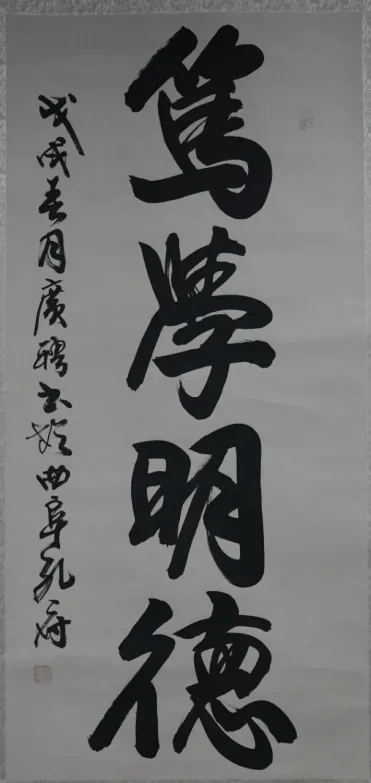 篤學明德
戊戌春月廣聘書於曲阜孔府